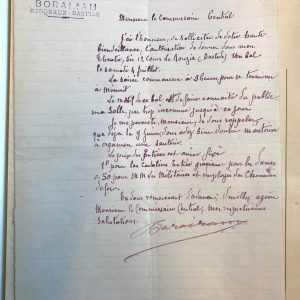 BORAIRAH
BORDEAUX-BASTIDE
Monsieur le Commissaire Central
J'ai l'honneur, de solliciter de votre haute
bienveillance, l'autorisation de donner dans mon
Théâtre, sis 12 Cours de (Bastide) un bal
le samedi 4 Juillet.
La soirée commence à 8 heures pour se terminer
à minuit
Le de ce Bal est de faire connaître du public
ma Salle par trop inconnue jusqu'à ce jour
Je me permets, Monsieur, de vous rappeler
que déjà le 9 Juin, vous avez bien voulu m'autoriser
à organiser une
Le prix des Entrées est ainsi fixé
1f pour les cavaliers, Entrée gratuite pour les Dames
0,50 pour MM les Militaires et employés du Chemin
de fer.
En vous remerciant d'avance, Veuillez agréer
Monsieur le Commissaire Central, mes respectueuses
salutations.